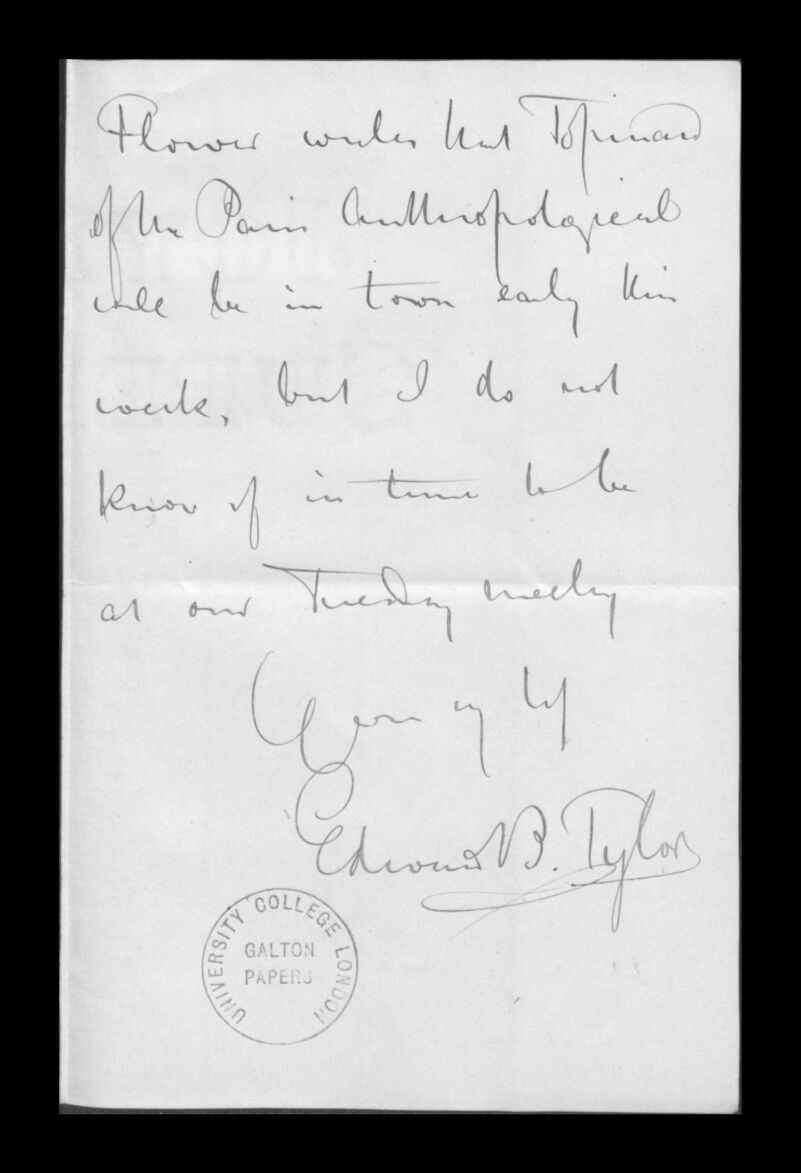 Flower writes that Topinard
of the Paris Anthropological
will be in town early this
week, but I do not
know if in time to be
at our Tuesday meeting
Yours
Edward B. Tylor
UNIVERSITY COLLEGE LONDON
GALTON
PAPERS